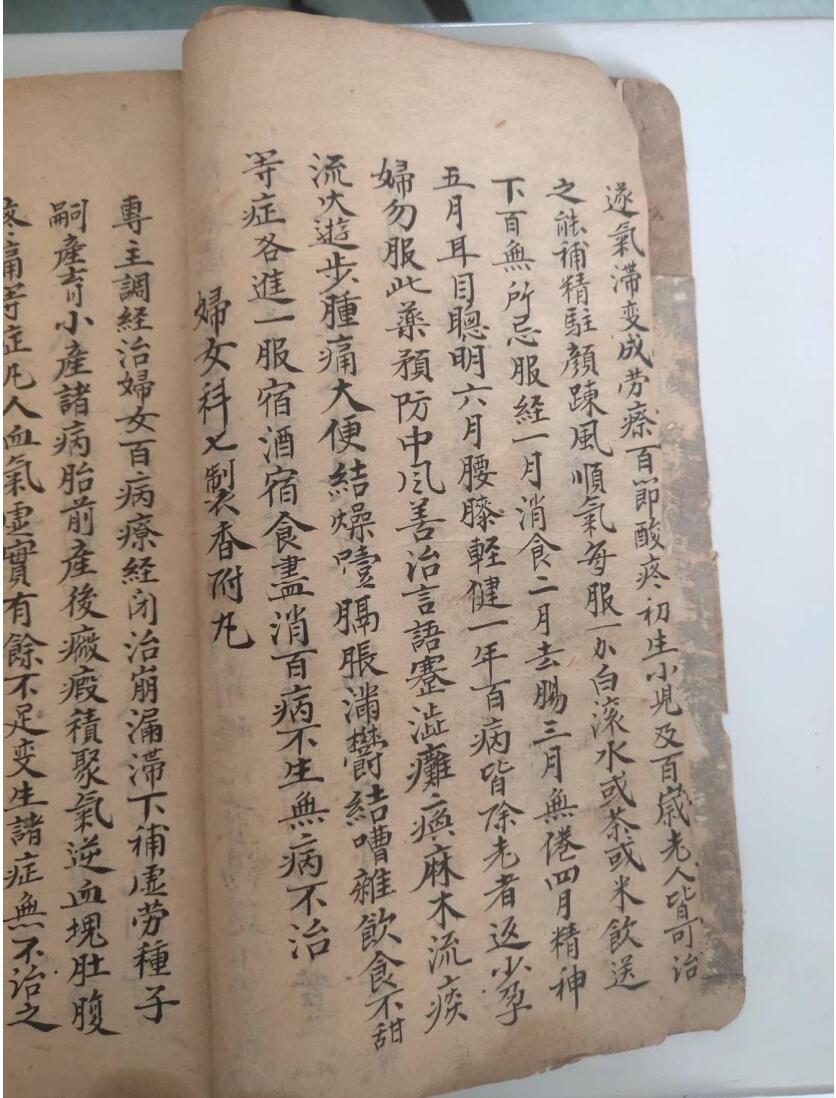 遂氣滯变成劳瘵百節酸疼初生小児及百歲老人皆可治
之能補精駐顏踈風順氣每服一分白滚水或茶或米飲送
下百無所忌服經一月消食二月去腸三月無倦四月精神
五月耳目聰明六月腰膝軽健一年百病皆除老者返少孕
婦勿服此藥預防中风善治言語蹇澁癱瘓麻木流痰
流火遊步腫痛大便結燥噎膈脹滿欝結嘈雜飲食不甜
等症各進一服宿酒宿食盡消百病不生無病不治
婦女科七製香附丸
專主調經治婦女百病療経闭治崩漏滞下補虚劳種子
嗣產育小產諸病胎前產後癥瘕積聚氣逆血塊肚腹
疼痛等症凡人血氣虚實有餘不足变生諸症無不治之